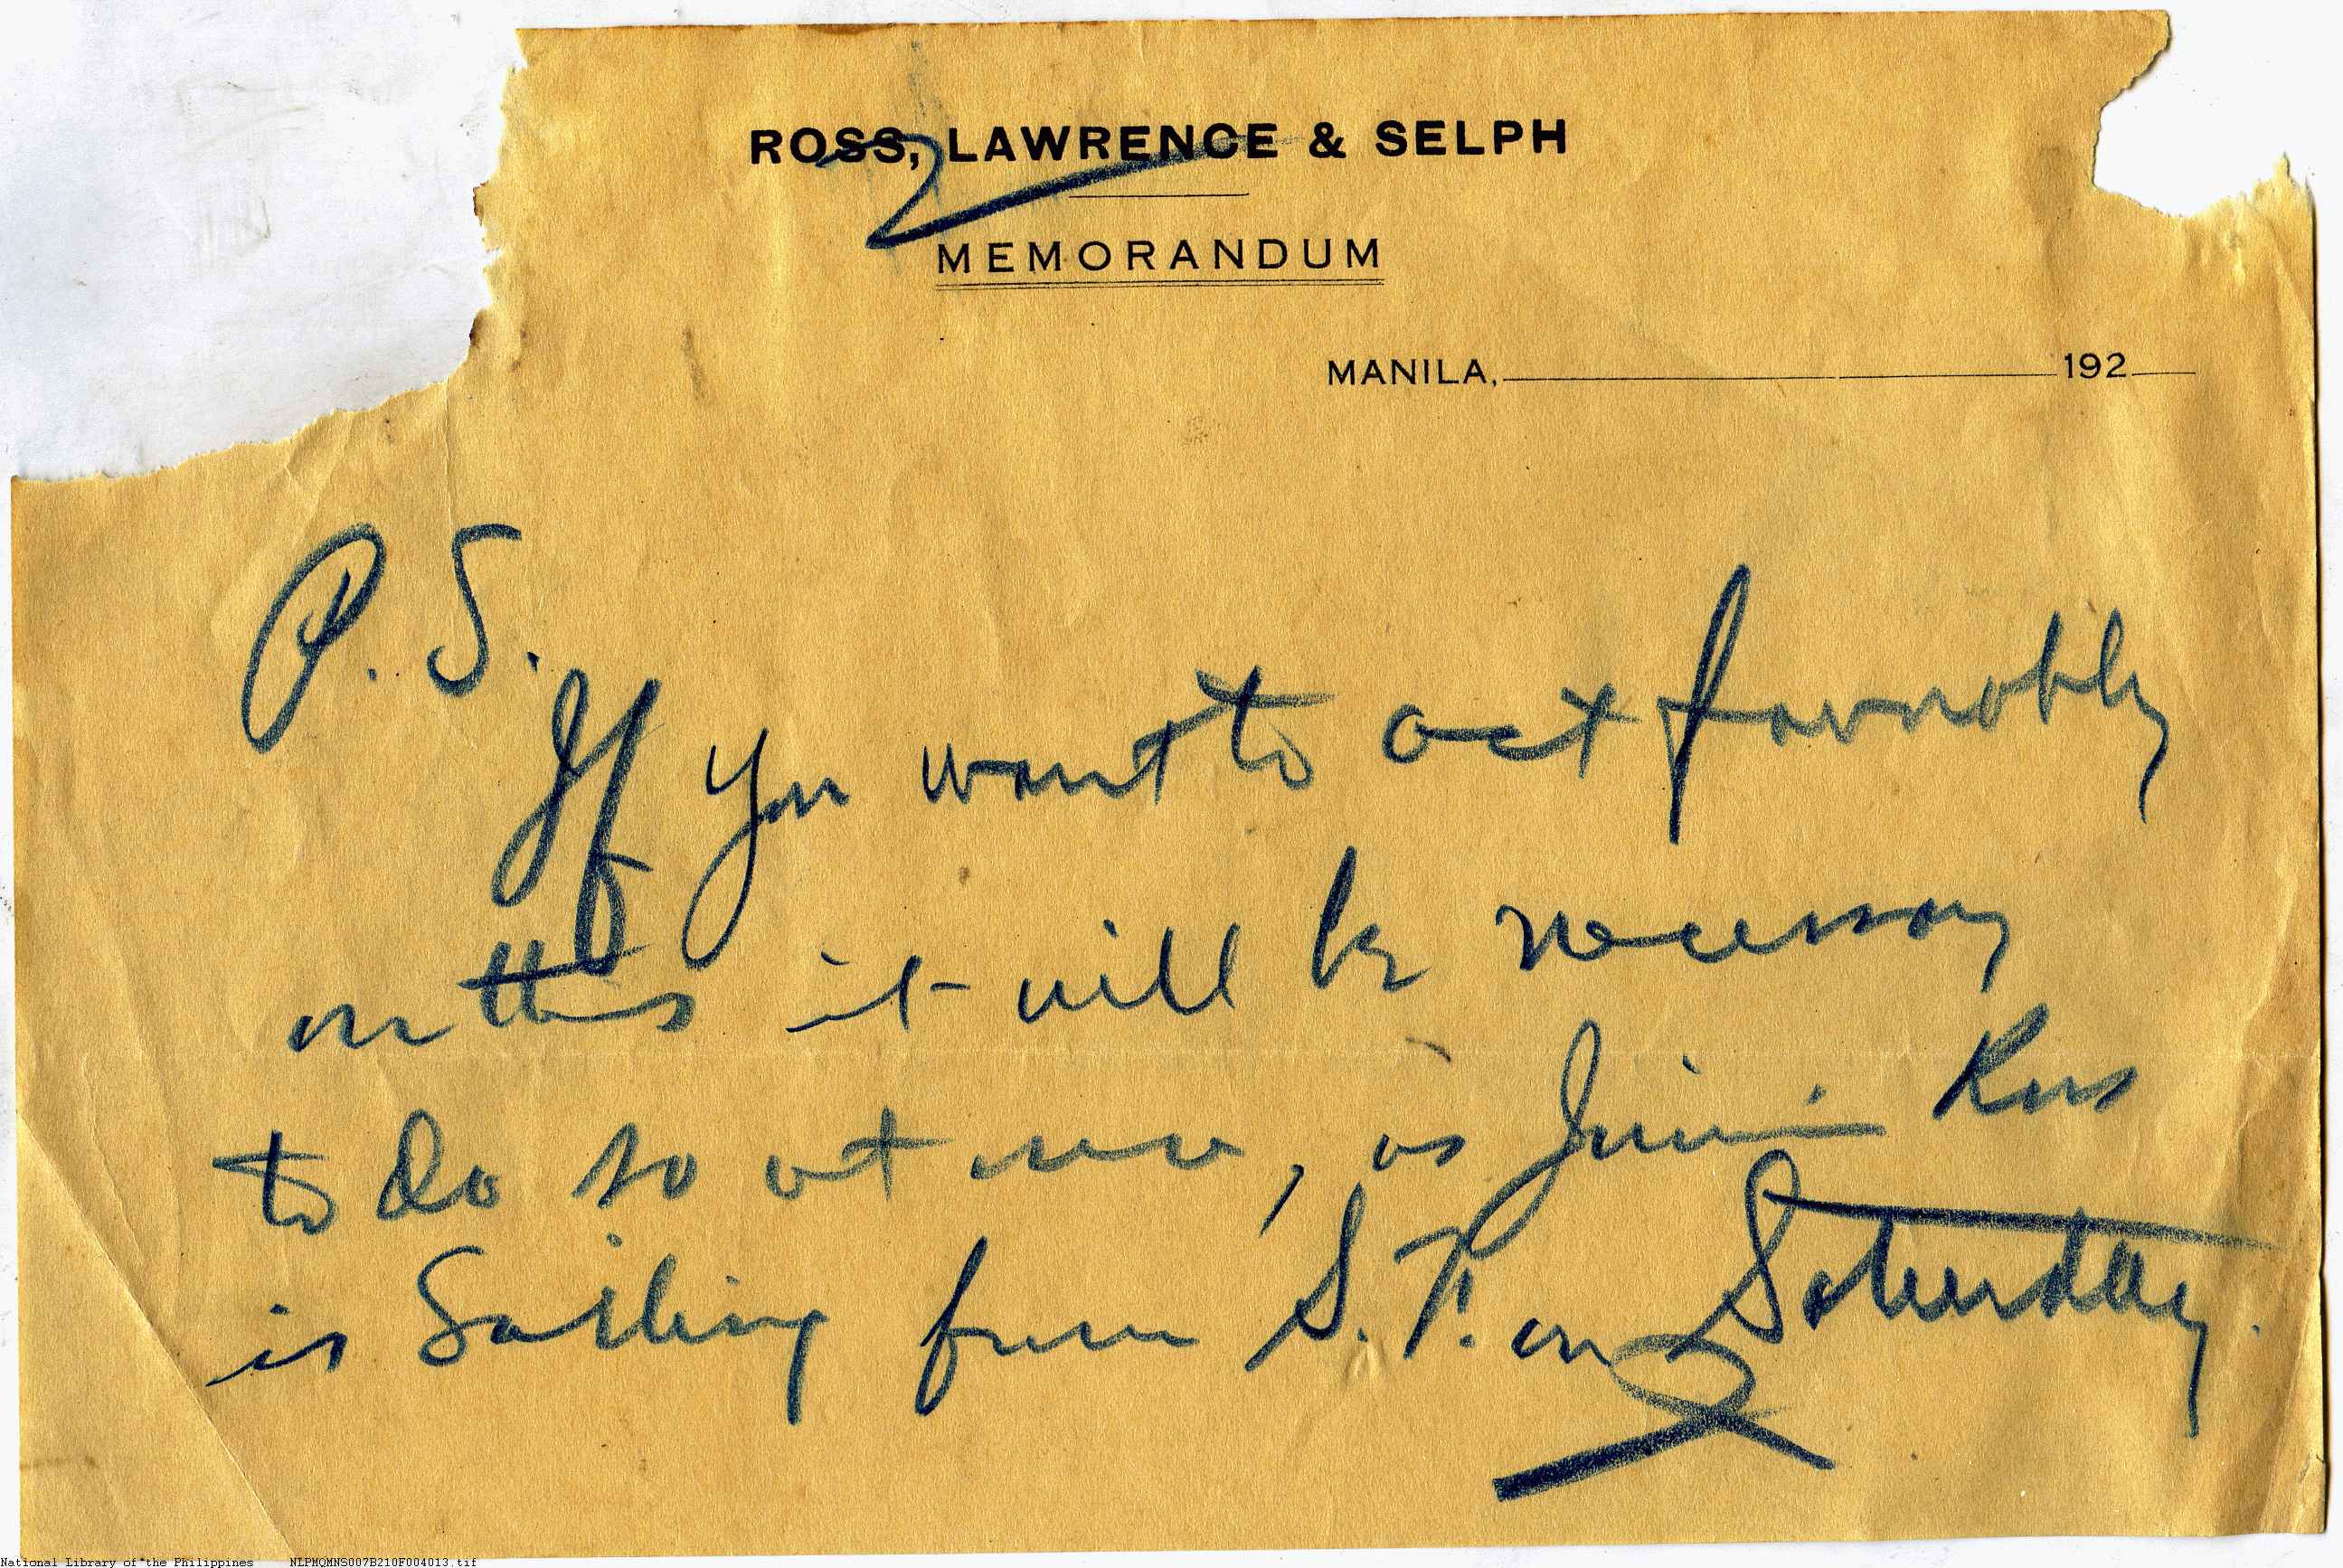 ROSS, LAWRENCE & SELPH
MEMORANDUM
MANILA, 192
P. S.
If you want to act favorably
on this it will be necessary
to do so at once, as Jimmie Ross
is Sailing from S. F. on Saturday.
National Library of the Philippines NLPMQMNS007B210F004013.tif